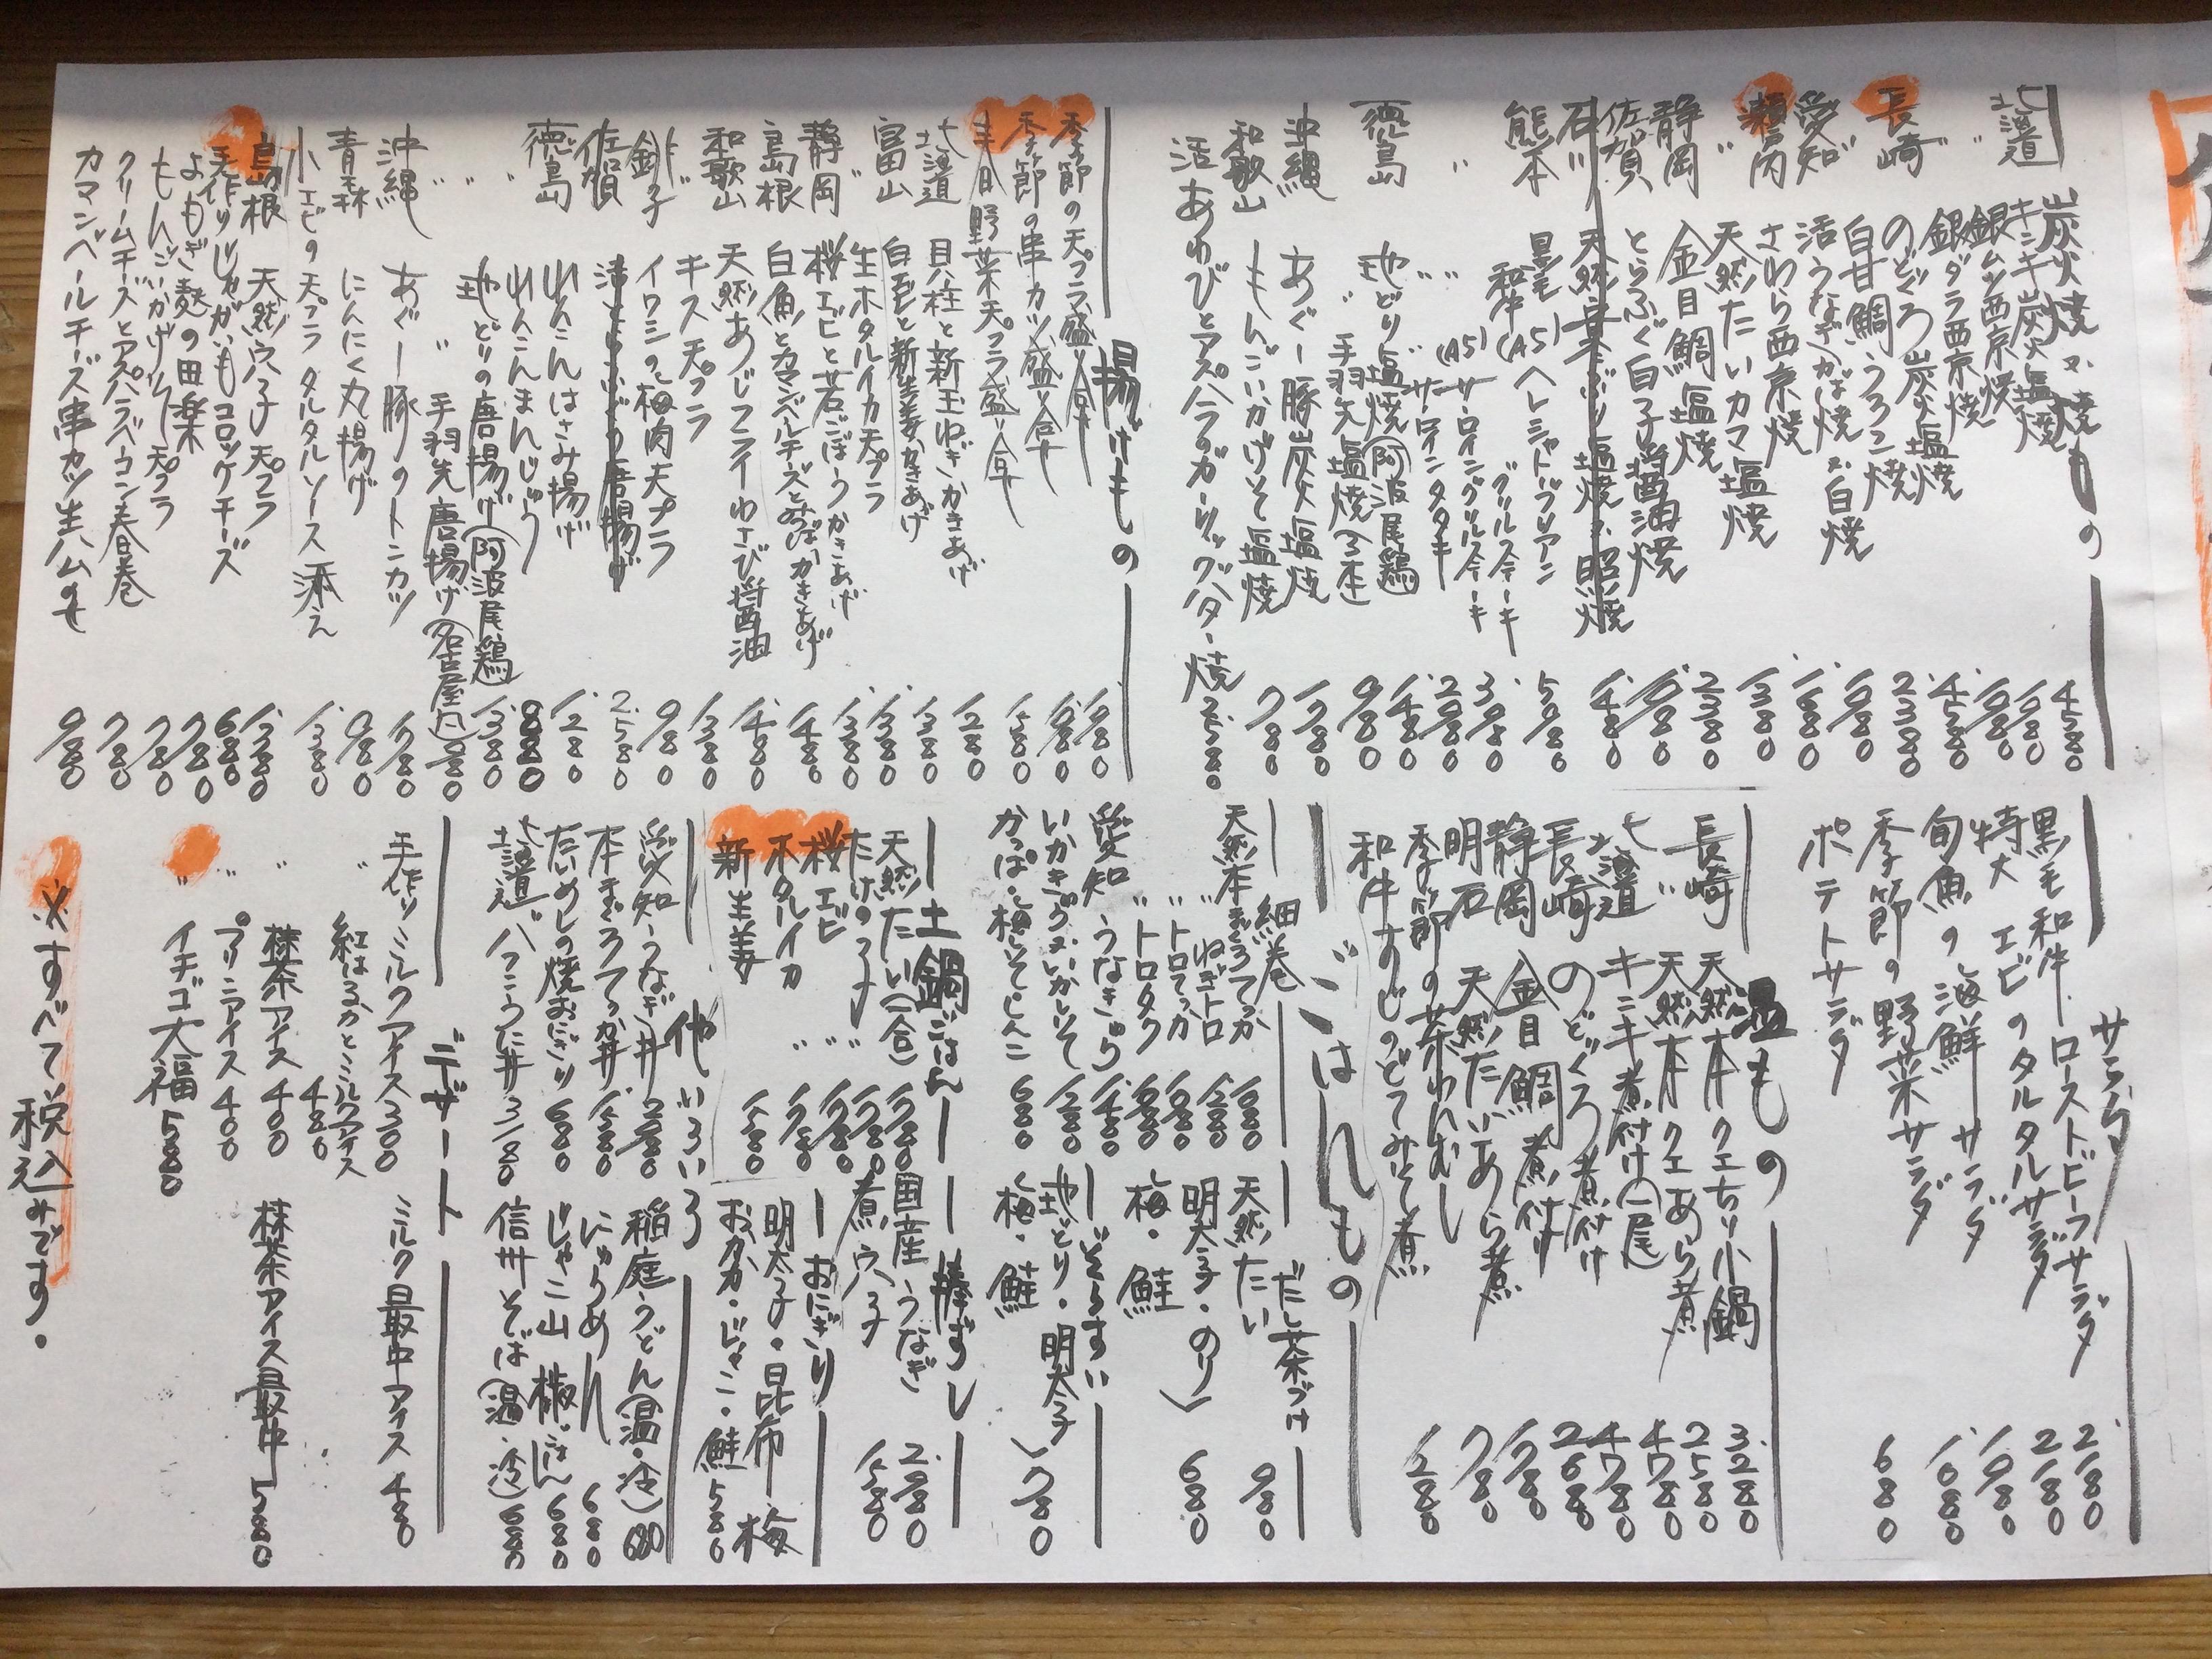 炭火焼又焼もの
北海道 キンキ炭火塩焼 4580
〃 銀ムツ西京焼 1980
〃 銀ダラ西京焼 1980
長崎 のどぐろ炭火塩焼 4580
〃 白甘鯛うろこ焼 2380
愛知 活うなぎかば焼又白焼
瀬戸内 さわら西京焼 1680
〃 天然たいカマ塩焼 1380
静岡 金目鯛塩焼 2380
佐賀 とらふぐ白子塩焼醤油焼
石川 天然
熊本 黒毛和牛(A5)ヘレシャトーブリアングリルステーキ
〃 〃 (A5)サーロイングリルステーキ
〃 〃 サーロインタタキ
徳島 地どり塩焼(阿波尾鶏)
〃 手羽先塩焼(3本) 980
沖縄 あぐー豚炭火塩焼 1780
和歌山 もんごいかげそ塩焼 780
活あゆびとアスパラのガーリックバター焼 2580
揚げもの
季節の天プラ盛り合せ 1980
季節の串カツ盛り合せ 1980
春日野菜天プラ盛り合せ 1580
北海道 貝柱と新玉ねぎかきあげ 1280
〃 白エビと新生姜かきあげ 1380
富山 生ホタルイカ天プラ 1380
静岡 桜エビと若ごぼうかきあげ 1380
島根 白魚とカマンベルチーズとあおばかきあげ 1480
和歌山 天然あじフライわさび醤油 1480
〃 キス天プラ 1380
銚子 イワシの梅肉天プラ 980
佐賀 唐揚げ 2580
徳島 れんこんはさみ揚げ 1280
〃 れんこんまんじゅう 880
〃 地どりの唐揚げ(阿波尾鶏) 1380
〃 〃 手羽先唐揚げ(名古屋風) 980
沖縄 あぐー豚のトンカツ 1780
青森 にんにく丸揚げ 980
小エビの天プラタルタルソース添え 1380
島根 天然穴子天プラ 1380
手作りじゃがいもコロッケチーズ 680
よもぎ麩の田楽 780
もんごいかげそ天プラ 780
クリームチーズとアスパラベーコン春巻 780
カマンベールチーズ串カツ生ハムのせ 980
サラダ
黒毛和牛ローストビーフサラダ 2180
特大エビのタルタルサラダ 2180
旬魚の海鮮サラダ 1980
季節の野菜サラダ 1080
ポテトサラダ 680
温もの
長崎 天然本クエちり小鍋 3280
〃 天然本クエあら煮 2580
北海道 キンキ煮付け(一尾) 4780
長崎 のどぐろ煮付け 4780
静岡 金目鯛煮付け 2680
明石 天然たいあら煮 1780
季節の茶わんむし 780
和牛すじのどてみそ煮 1280
ごはんもの
細巻
天然本まぐろてっか 1680
〃 ねぎトロ 1280
〃 トロてっか 1680
〃 トロタク 1680
愛知 うなきゅう 1480
いかきゅう又いかしそ 1280
かっぱ・梅しそ・しんこ 680
だし茶づけ
天然たい 980
明太子・のり
梅・鮭 680
ぞうすい
地どり・明太子
梅・鮭 780
土鍋ごはん
天然たい(一合) 1780
たけの子 〃 1780
桜エビ 〃 1780
ホタルイカ 〃 1780
新生姜 1280
棒ずし
国産うなぎ 2980
煮穴子 1580
おにぎり
明太子・昆布・梅
おかか・じゃこ・鮭 580
他いろいろ
愛知うなぎ丼 2980
本まぐろてっか丼 1580
たいめしの焼おにぎり 680
北海道バフンうに丼 3180
稲庭うどん(温・冷) 680
にゅうめん 680
じゃこ山椒ごはん 680
信州そば(温・冷) 680
デザート
手作りミルクアイス 300
〃 紅はるかとミルクアイス 480
〃 抹茶アイス 400
〃 プリンアイス 400
〃 イチゴ大福 580
ミルク最中アイス 480
抹茶アイス最中 580
※すべて税込みです。